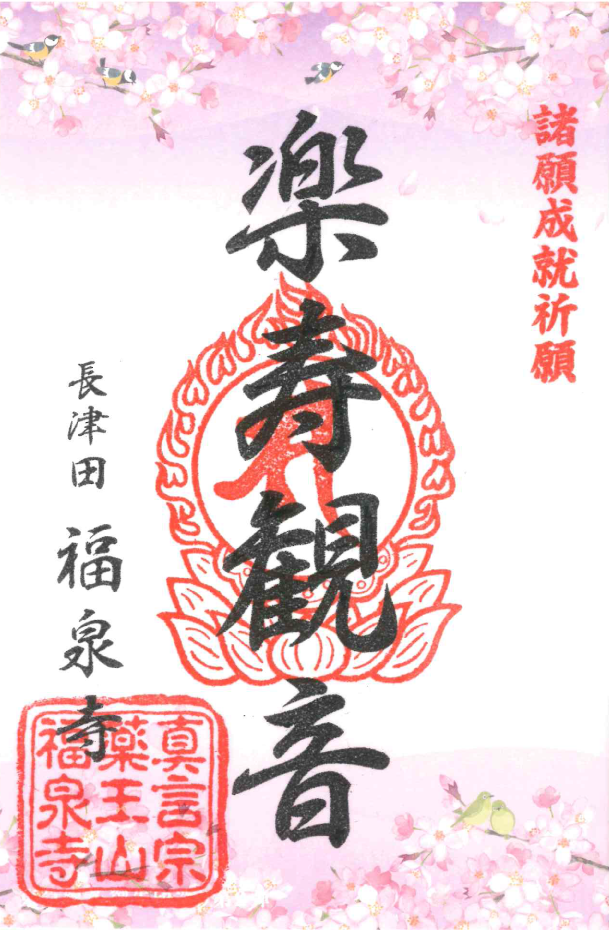 諸願成就祈願
楽寿観音
長津田 福泉寺
真言宗
薬王山
福泉寺